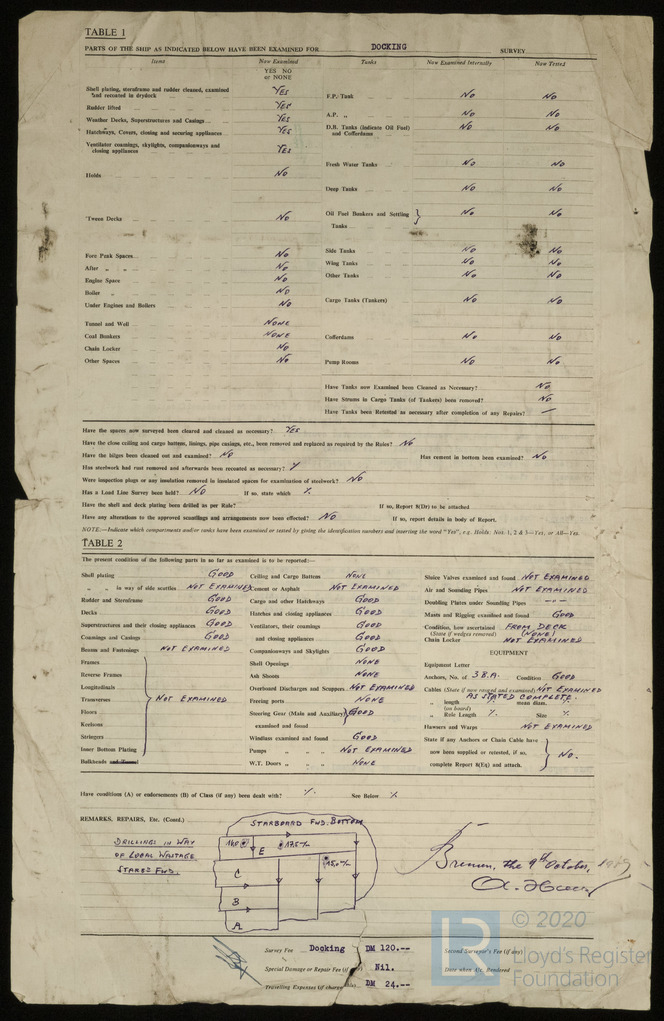 TABLE 1
PARTS OF THE SHIP AS INDICATED BELOW HAVE BEEN EXAMINED FOR DOCKING SURVEY
Items Now Examined Tanks Now Examined Internally Now Tested
YES NO
or NONE
Shell plating, sternframe and rudder cleaned, examined
and recoated in drydock YES
Rudder lifted YES
Weather Decks, Superstructures and Casings YES
Hatchways, Covers, closing and securing appliances YES
Ventilator coamings, skylights, companionways and
closing appliances YES
Holds NO
'Tween Decks NO
Fore Peak Spaces NO
After " " NO
Engine Space NO
Boiler " NO
Under Engines and Boilers NO
Tunnel and Well NONE
Coal Bunkers NONE
Chain Locker NO
Other Spaces NO
F.P. Tank No No
A.P. " No No
D.B. Tanks (Indicate Oil Fuel) No No
and Cofferdams
Fresh Water Tanks No No
Deep Tanks No No
Oil Fuel Bunkers and Settling No No
Tanks
Side Tanks No No
Wing Tanks No No
Other Tanks No No
Cargo Tanks (Tankers) No No
Cofferdams No No
Pump Rooms No No
Have Tanks now Examined been Cleaned as Necessary? No
Have Strums in Cargo Tanks (of Tankers) been removed? No
Have Tanks been Retested as necessary after completion of any Repairs? —
Have the spaces now surveyed been cleared and cleaned as necessary? YES
Have the close ceiling and cargo battens, linings, pipe casings, etc., been removed and replaced as required by the Rules? No
Have the bilges been cleaned out and examined? No Has cement in bottom been examined? No
Has steelwork had rust removed and afterwards been recoated as necessary? Y
Were inspection plugs or any insulation removed in insulated spaces for examination of steelwork? No
Has a Load Line Survey been held? NO If so, state which %
Have the shell and deck plating been drilled as per Rule? If so, Report 8(Dr) to be attached
Have any alterations to the approved scantlings and arrangements now been effected? NO If so, report details in body of Report.
NOTE:—Indicate which compartments and/or tanks have been examined or tested by giving the identification numbers and inserting the word "Yes", e.g. Holds. Nos. 1, 2 & 3—Yes, or All—Yes.
TABLE 2
The present condition of the following parts in so far as examined is to be reported:—
Shell plating GOOD
" " in way of side scuttles NOT EXAMINED
Rudder and Sternframe GOOD
Decks GOOD
Superstructures and their closing appliances GOOD
Coamings and Casings GOOD
Beams and Fastenings NOT EXAMINED
Frames
Reverse Frames
Longitudinals
Transverses NOT EXAMINED
Floors
Keelsons
Stringers
Inner Bottom Plating
Bulkheads and Tunnel
Ceiling and Cargo Battens NONE
Cement or Asphalt NOT EXAMINED
Cargo and other Hatchways GOOD
Hatches and closing appliances GOOD
Ventilators, their coamings GOOD
and closing appliances GOOD
Companionways and Skylights GOOD
Shell Openings NONE
Ash Shoots NONE
Overboard Discharges and Scuppers NOT EXAMINED
Freeing ports NONE
Steering Gear (Main and Auxiliary) GOOD
examined and found
Windlass examined and found GOOD
Pumps " " " NOT EXAMINED
W.T. Doors " " " NONE
Sluice Valves examined and found NOT EXAMINED
Air and Sounding Pipes NOT EXAMINED
Doubling Plates under Sounding Pipes ---
Masts and Rigging examined and found GOOD
Condition, how ascertained FROM DECK
(State if wedges removed) (NONE)
Chain Locker NOT EXAMINED
EQUIPMENT
Equipment Letter
Anchors, No. of 3 B.A. Condition GOOD
Cables (State if now ranged and examined) NOT EXAMINED
AS STATED COMPLETE
" length mean diam.
(on board)
" Rule Length % Size %
Hawsers and Warps NOT EXAMINED
State if any Anchors or Chain Cable have
now been supplied or retested, if so, No.
complete Report 8(Eq) and attach.
Have conditions (A) or endorsements (B) of Class (if any) been dealt with? % See Below %
REMARKS, REPAIRS, Etc. (Contd.)
STARBOARD FWD. BOTTOM
DRILLINGS IN WAY
OF LOCAL WASTAGE
STARBD FWD.
E
C
B
A
Bremen, the 9th October,
Survey Fee Docking DM 120.--
Special Damage or Repair Fee (if any) Nil.
Travelling Expenses (if chargeable) DM 24.--
Second Surveyor's Fee (if any)
Date when A/c. Rendered
LR
© 2020
Lloyd's Register
Foundation